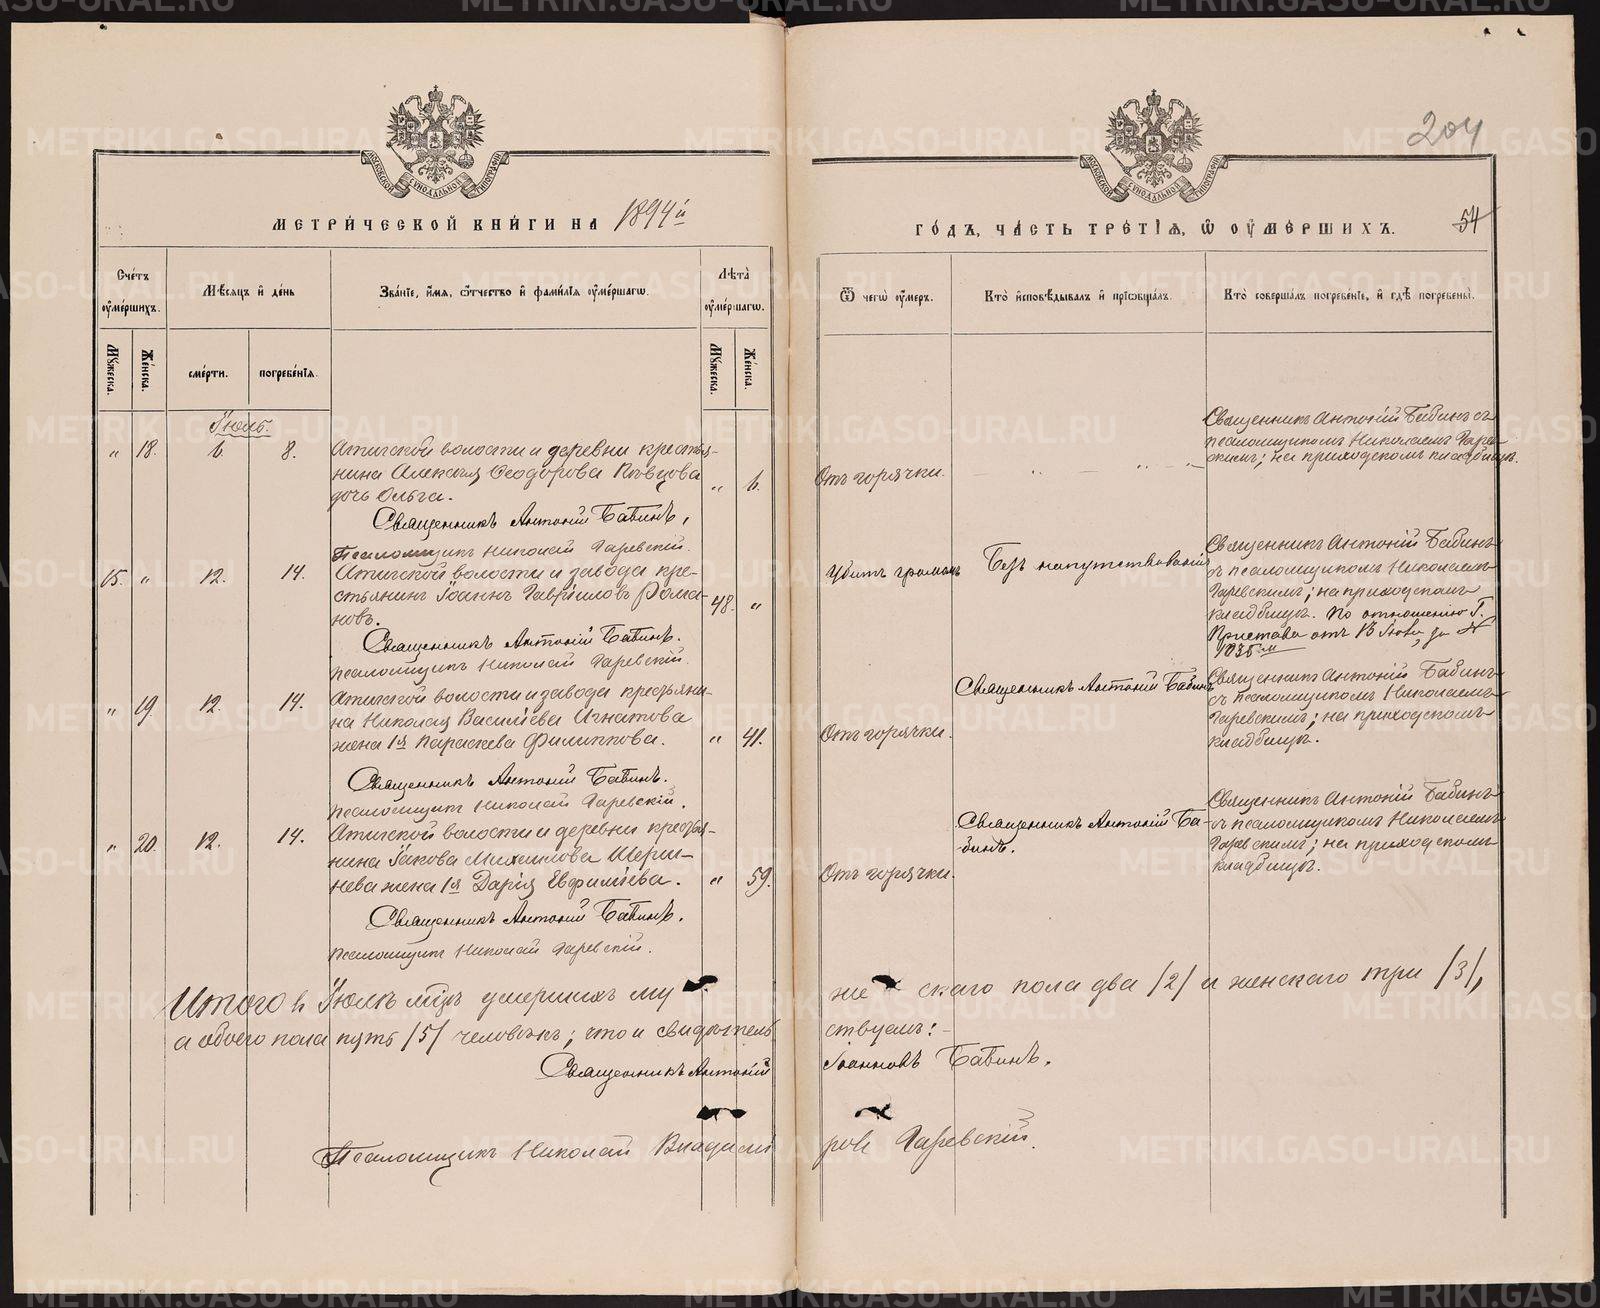 204
МЕТРИЧЕСКОЙ КНИГИ НА 1894й
ГОДЪ, ЧАСТЬ ТРЕТІЯ, Ѿ ОУМЕРШИХЪ.
54
Счетъ оумершихъ.
Мѣсяцъ и день
Званіе, имя, ѿчество и фамилія оумершагѡ.
Лѣта оумершагѡ.
Ѿ чегѡ оумеръ.
Кто исповѣдывалъ и пріобщалъ.
Кто совершалъ погребеніе, и гдѣ погребены.
Мужеска.
Женска.
смерти.
погребенія.
Мужеска.
Женска.
Іюль.
„ 18. 6. 8.
Атигской волости и деревни крестья-
нина Алексѣя Ѳеодорова Кивцова
дочь Ольга.
„ 6.
Отъ горячки.
Священникъ Антоній Бабинъ съ
псаломщикомъ Николаемъ Гарев-
скимъ; на приходскомъ кладбищѣ.
Священникъ Антоній Бабинъ,
Псаломщикъ Николай Гаревскій.
15. „ 12. 14.
Атигской волости и завода кре-
стьянинъ Іоаннъ Гавріиловъ Рома-
новъ.
48. „
Убитъ громомъ
Безъ напутствованія
Священникъ Антоній Бабинъ
съ псаломщикомъ Николаемъ
Гаревскимъ; на приходскомъ
кладбищѣ. По отношенію Г.
Пристава отъ 13 Іюля, за №
1035м
Священникъ Антоній Бабинъ.
Псаломщикъ Николай Гаревскій.
„ 19. 12. 14.
Атигской волости и завода крестьяни-
на Николая Васильева Игнатова
жена 1я Параскева Филиппова.
„ 41.
Отъ горячки.
Священникъ Антоній Бабинъ
Священникъ Антоній Бабинъ
съ псаломщикомъ Николаемъ
Гаревскимъ; на приходскомъ
кладбищѣ.
Священникъ Антоній Бабинъ.
Псаломщикъ Николай Гаревскій.
„ 20. 12. 14.
Атигской волости и деревни крестья-
нина Іакова Михаилова Шерш-
нева жена 1я Дарія Евфиміева.
„ 59.
Отъ горячки.
Священникъ Антоній Ба-
бинъ.
Священникъ Антоній Бабинъ
съ псаломщикомъ Николаемъ
Гаревскимъ; на приходскомъ
кладбищѣ.
Священникъ Антоній Бабинъ.
Псаломщикъ Николай Гаревскій.
Итого въ Іюлѣ мцѣ умершихъ му же скаго пола два /2/ и женскаго три /3/,
а обоего пола пять /5/ человѣкъ; что и свидѣтель ствуемъ:
Священникъ Антоній Іоанновъ Бабинъ.
Псаломщикъ Николай Владимі ровъ Гаревскій.
METRIKI.GASO-URAL.RU